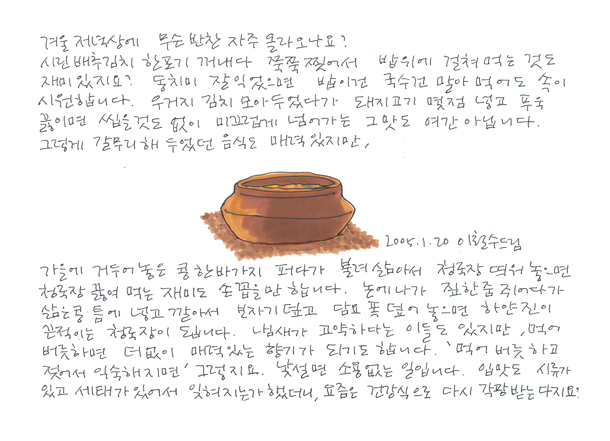 겨울 저녁상에 무슨 반찬 자주 올라오나요?
시린 배추김치 한포기 꺼내다 쭉쭉 찢어서 밥위에 걸쳐 먹는 것도
재미있지요? 동치미 잘 익었으면 밥이건 국수건 말아 먹어도 속이
시원합니다. 우거지 김치 모아두었다가 돼지고기 몇점 넣고 푸욱
끓이면 씹을것도 없이 미끄럽게 넘어가는 그 맛도 여간 아닙니다.
그렇게 갈무리해 두었던 음식도 매력있지만,
2005.1.20 이철수드림
가을에 거두어 놓은 콩 한바가지 퍼다가 불려 삶아서 청국장 띄워 놓으면
청국장 끓여 먹는 재미도 손꼽을만 합니다. 논에나가 짚 한줌 쥐어다가
삶은콩 틈에 넣고 깔아서 보자기 덮고 담요 푹 덮어 놓으면 하얀진이
끈적이는 청국장이 됩니다. 냄새가 고약하다는 이들도 있지만, 먹어
버릇하면 더없이 매력있는 향기가 되기도 합니다. '먹어 버릇하고
젖어서 익숙해지면' 그렇지요. 낯설면 소용없는 일입니다. 입맛도 시류가
있고 세태가 있어서 잊혀지는가 했더니, 요즘은 건강식으로 다시 각광받는다지요?